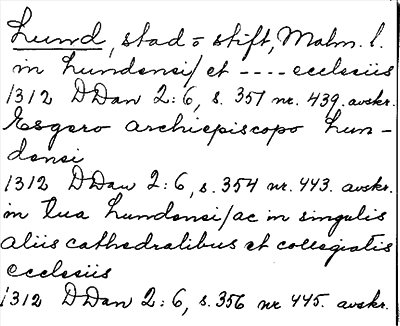 Lund, stad o stift, Malm. l.
in Lundensi/et ---- ecclesiis
1312 DDan 2:6, s. 351 nr. 439. avskr.
Esgero archiepiscopo Lun-
densi
1312 DDan 2:6, s. 354 nr. 443. avskr.
in tua Lundensi/ac in singulis
aliis cathedralibus et collegiatis
ecclesiis
1312 DDan 2:6, s. 356 nr 445. avskr.